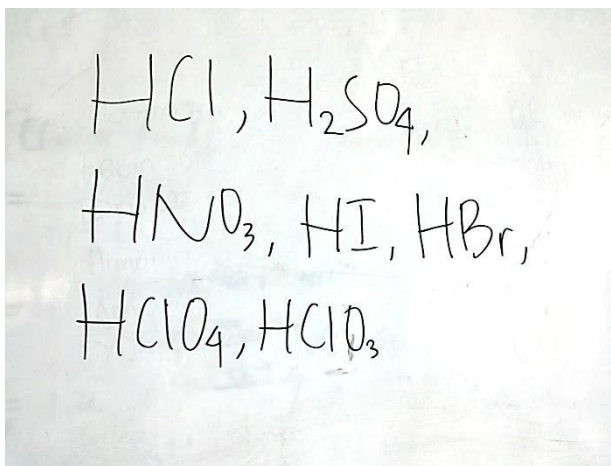 HCl, H₂SO₄,
HNO₃, HI, HBr,
HClO₄, HClO₃